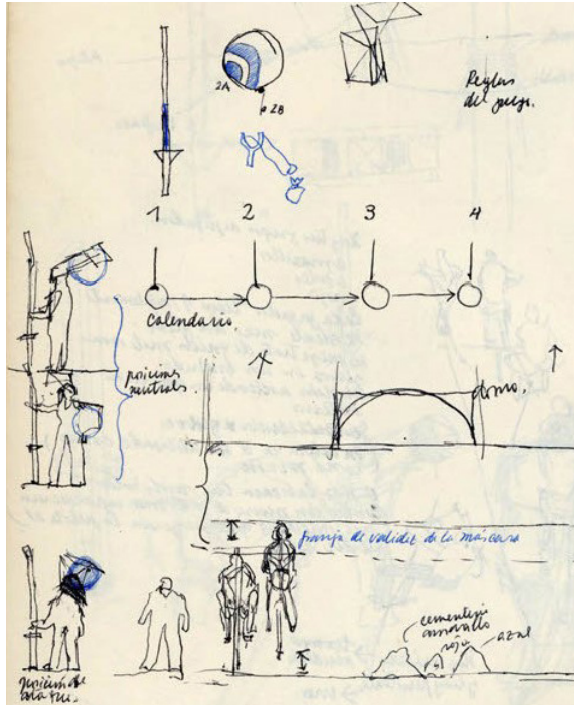 2A
2B
Reglas
del juego.
1 2 3 4
calendario.
posiciones
neutrales
domo.
franja de validez de la máscara
cementerio
amarillo
rojo
azul
posición de